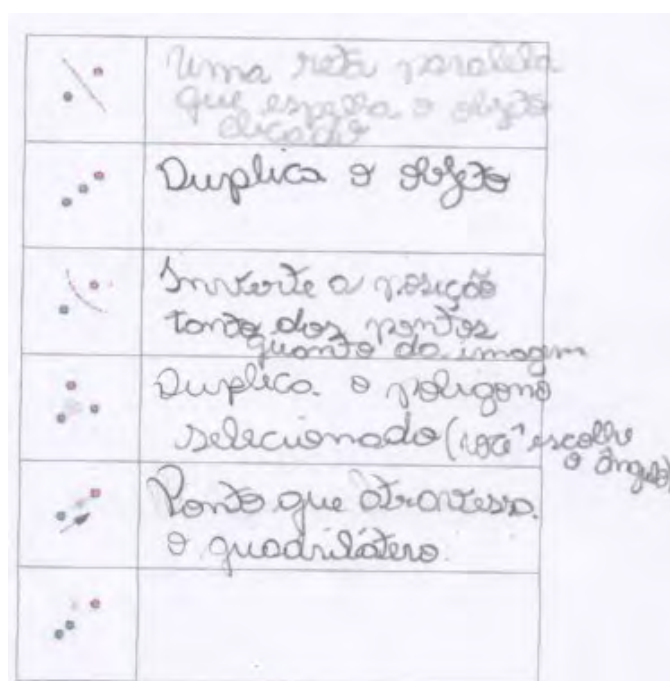 Uma reta paralela
que espelha o objeto
clicado
Duplica o objeto
Inverte a posição
tanto dos pontos
quanto da imagem
Duplica o poligono
selecionado (você escolhe
o ângulo)
Ponto que atravessa
o quadrilátero.